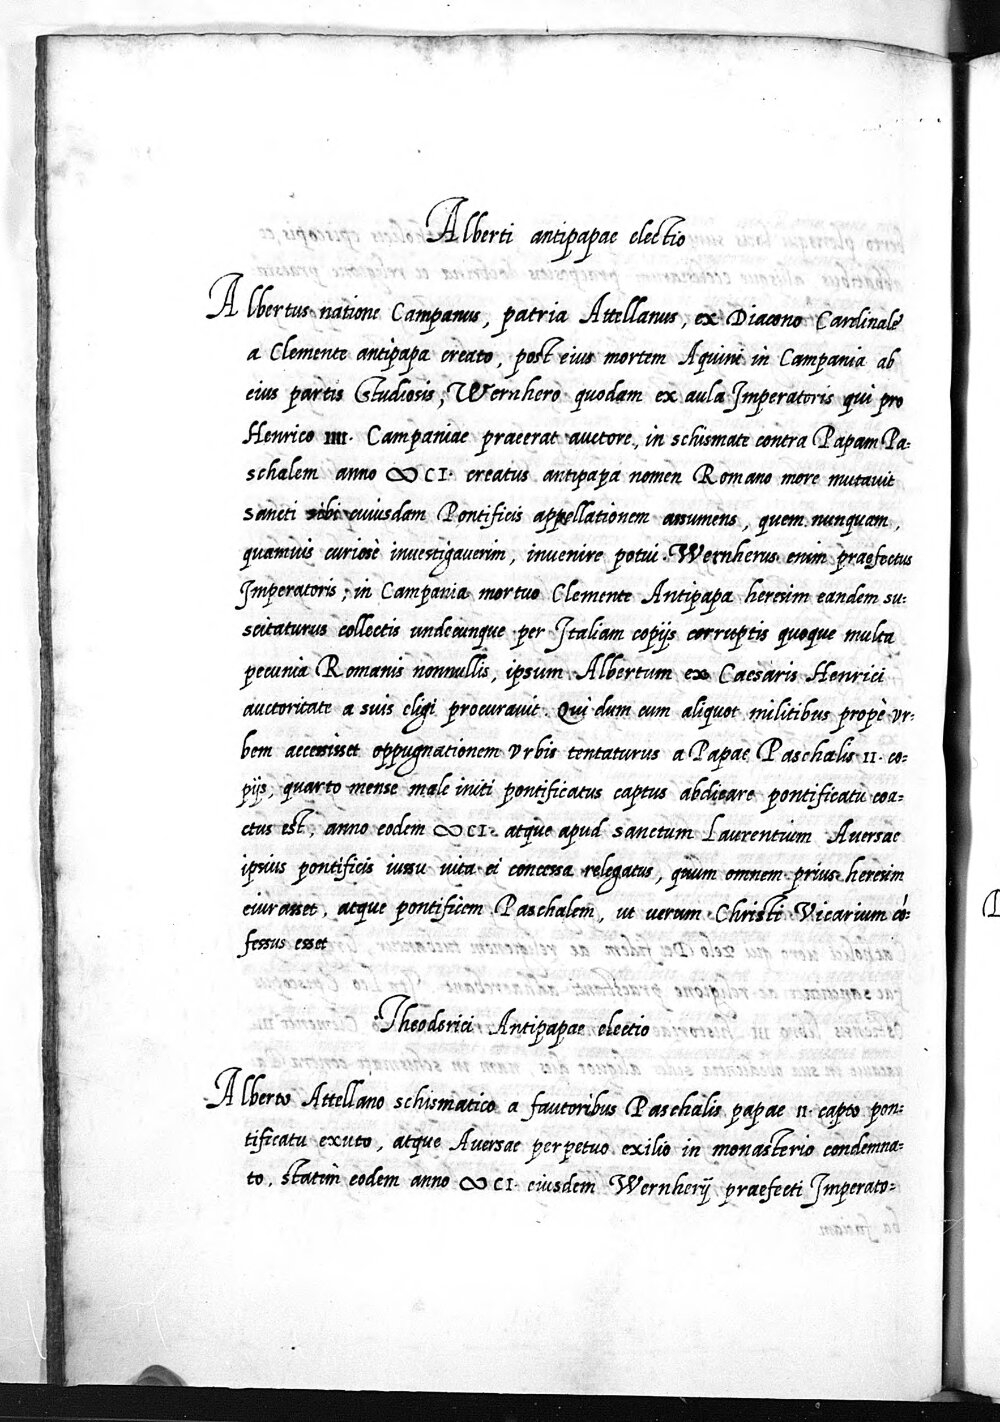 Alberti antipapae electio
Albertus natione Campanus, patria Attellanus, ex Diacono Cardinale
a Clemente antipapa creato, post eius mortem Aquini in Campania ab
eius partis Studiosis, Wernhero quodam ex aula Imperatoris qui pro
Henrico IIII. Campaniae praeerat auctore, in schismate contra Papam Pa:
schalem anno ∞CI. creatus antipapa nomen Romano more mutavit
Sancti sibi cuiusdam Pontificis appellationem assumens, quem nunquam,
quamvis curiosè investigaverim, invenire potui. Wernherus enim praefectus
Imperatoris; in Campania mortuo Clemente Antipapa heresim eandem su:
scitaturus collectis undecunque per Italiam copijs corruptis quoque multa
pecunia Romanis nonnullis, ipsum Albertum ex Caesaris Henrici
auctoritate a suis eligi procuravit. Qui dum cum aliquot militibus propè vr:
bem accessisset oppugnationem vrbis tentaturus a Papae Paschalis II. co:
pijs, quarto mense male initi pontificatus captus abdicare pontificatu coa:
ctus est, anno eodem ∞CI. atque apud Sanctum Laurentium Aversae
ipsius pontificis iussu vita ei concessa relegatus, quum omnem prius heresim
eiurasset, atque pontificem Paschalem, ut verum Christi Vicarium cō:
fessus esset
Theoderici Antipapae electio
Alberto Attellano schismatico a fautoribus Paschalis papae II. capto pon:
tificatu exuto, atque Aversae perpetuo exilio in monasterio condemna:
to, statim eodem anno ∞CI. eiusdem Wernherij praefecti Imperato: